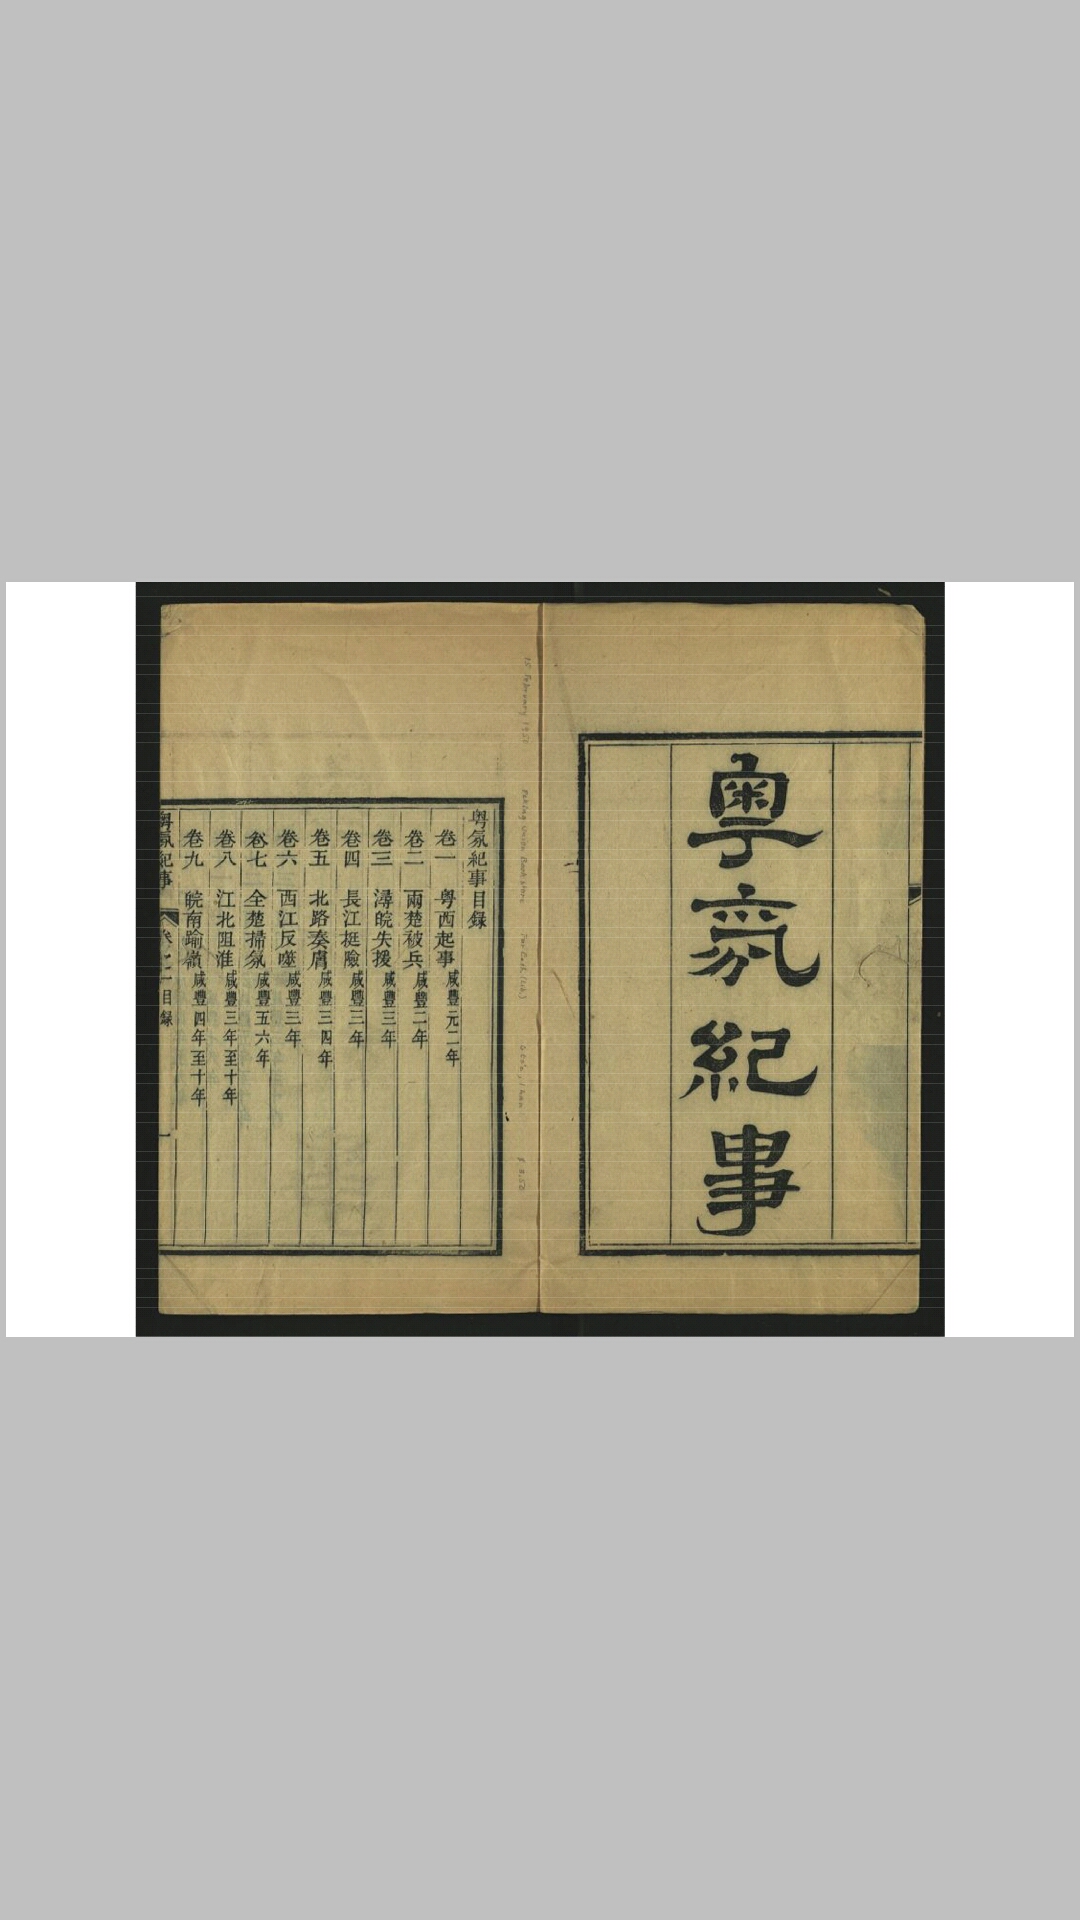 粵氛紀事
15 February 1951
Peking Union Book Store
粵氛紀事目錄
卷一 粵西起事 咸豐元二年
卷二 兩楚被兵 咸豐二年
卷三 潯皖失援 咸豐三年
卷四 長江挺險 咸豐三年
卷五 北路奏膚 咸豐三四年
卷六 西江反噬 咸豐三年
卷七 全楚掃氛 咸豐五六年
卷八 江北阻淮 咸豐三年至十年
卷九 皖南踰嶺 咸豐四年至十年
粵氛紀事 卷之一 目錄 一